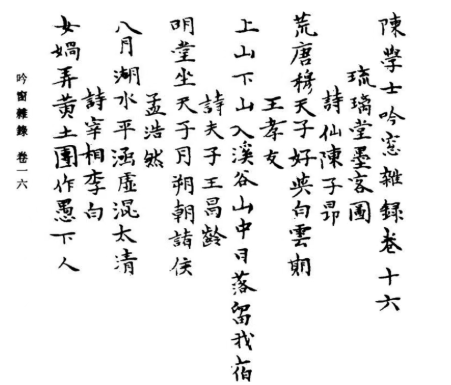 陳學士吟窓雜録卷十六
琉璃堂墨客圖
詩仙陳子昂
荒唐穆天子好與白雲期
王孝友
上山下山入溪谷山中日落留我宿
詩夫子王昌齡
明堂坐天子月朔朝諸侯
孟浩然
八月湖水平涵虛混太清
詩宰相李白
女媧弄黃土團作愚下人
吟窗雜錄 卷一六